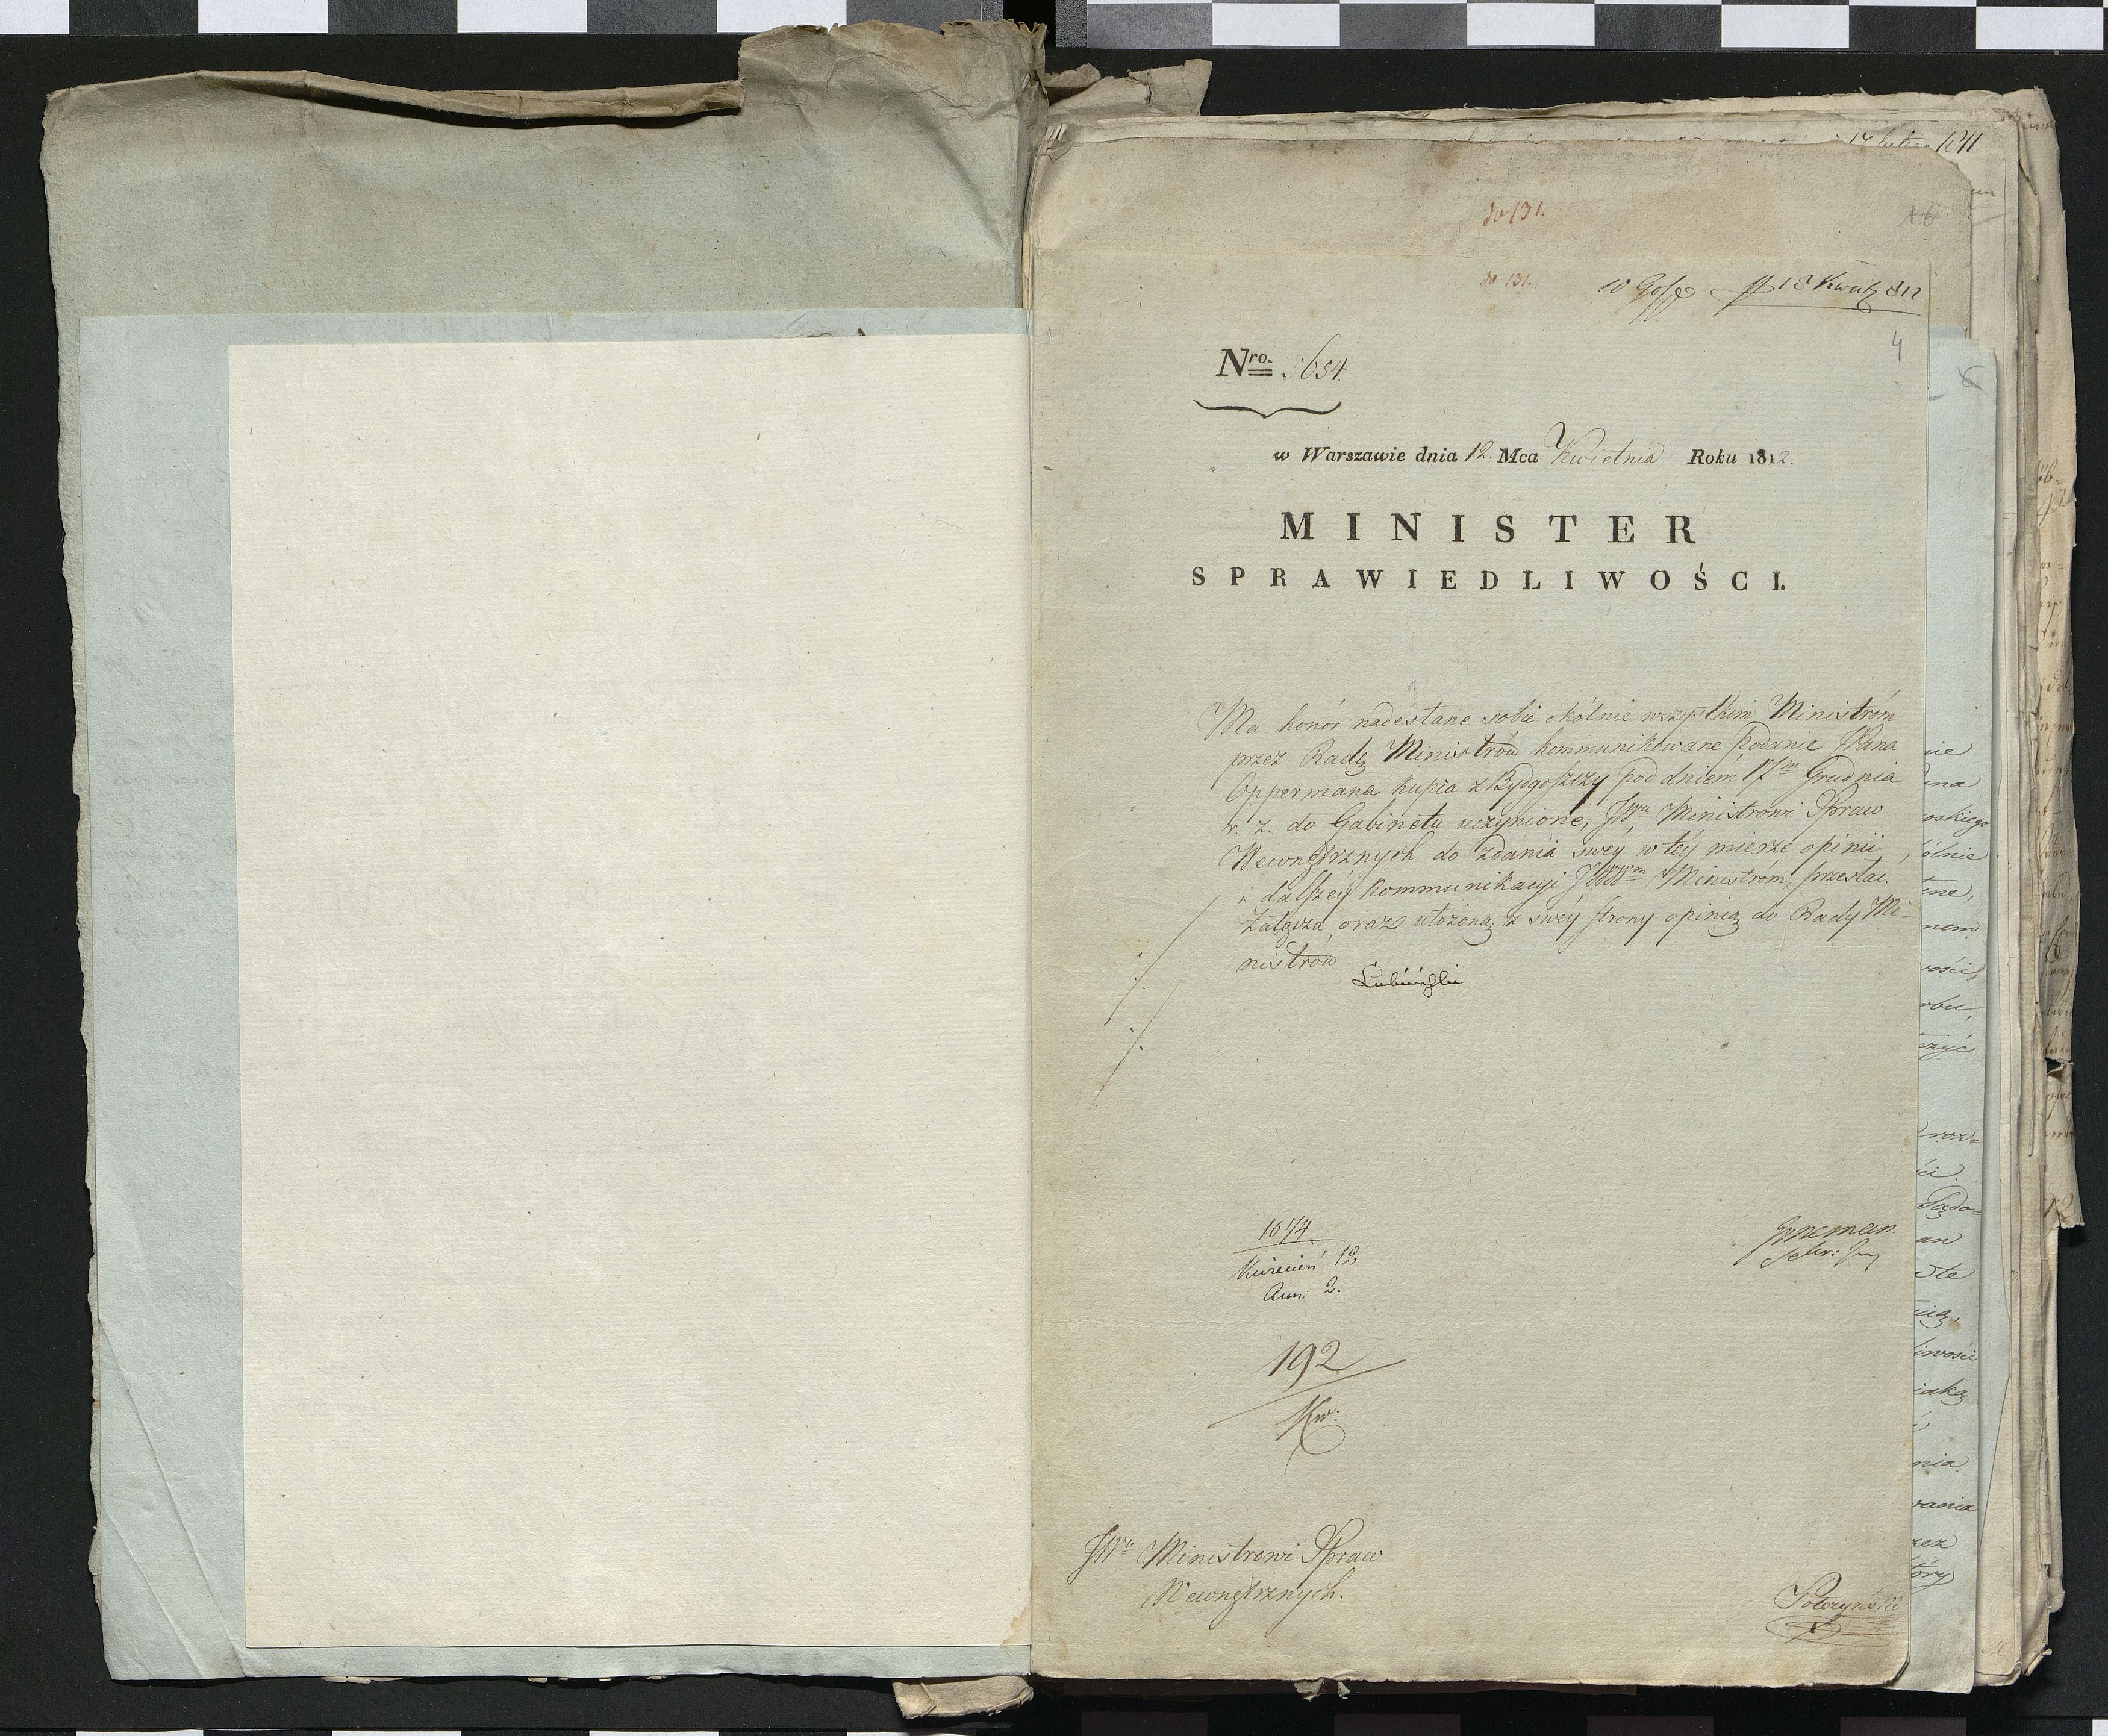 17 lutego 1811
do 131.
16
do 131.
18 Kwiet 812
4
Nro. 5654.
6
w Warszawie dnia 12. Mca Kwietnia Roku 1812.
MINISTER
SPRAWIEDLIWOŚCI.
Ma honor nadesłane sobie okólnie wszystkim Ministróm
przez Radę Ministrów kommunikowane podanie JPana
Oppermana kupca z Bydgoszczy pod dniem 17m Grudnia
r. z. do Gabinetu uczynione, JWu Ministrowi Spraw
Wewnętrznych do zdania swey w téy mierze opinii
i dalszéy kommunikacyi JWWm Ministrom, przesłać.
Załącza oraz ułożoną z swéy strony opinią do Rady Mi-
nistrów
Łubieński
1074
Kwiecień 12
Ann: 2.
192
Kw:
JWu Ministrowi Spraw
Wewnętrznych.
Połczyński